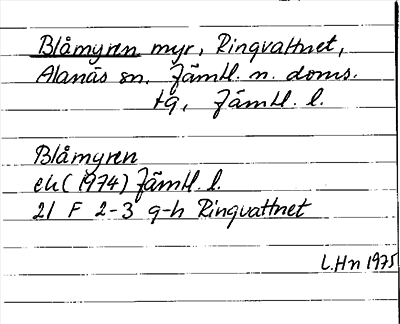 Blåmyren myr, Ringvattnet,
Alanäs sn, Jämtl. n. doms.
tg, Jämtl. l.
Blåmyren
ek (1974) Jämtl. l.
21 F 2-3 g-h Ringvattnet
L.Hn 1975